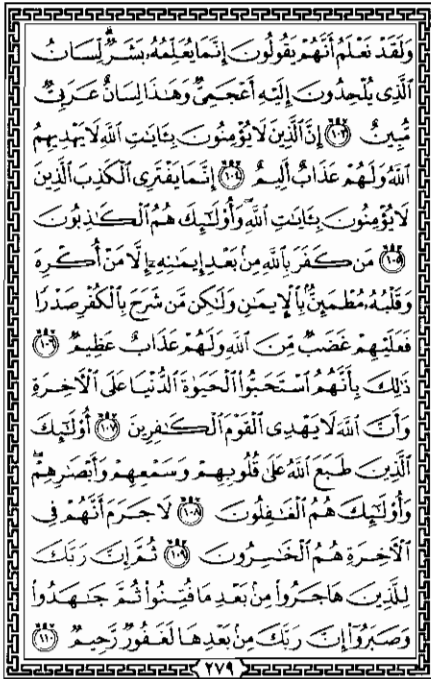 وَلَقَدْ نَعْلَمُ أَنَّهُمْ يَقُولُونَ إِنَّمَا يُعَلِّمُهُۥ بَشَرٌ ۗ لِّسَانُ
ٱلَّذِى يُلْحِدُونَ إِلَيْهِ أَعْجَمِىٌّ وَهَٰذَا لِسَانٌ عَرَبِىٌّ
مُّبِينٌ ١٠٣ إِنَّ ٱلَّذِينَ لَا يُؤْمِنُونَ بِـَٔايَٰتِ ٱللَّهِ لَا يَهْدِيهِمُ
ٱللَّهُ وَلَهُمْ عَذَابٌ أَلِيمٌ ١٠٤ إِنَّمَا يَفْتَرِى ٱلْكَذِبَ ٱلَّذِينَ
لَا يُؤْمِنُونَ بِـَٔايَٰتِ ٱللَّهِ ۖ وَأُو۟لَٰٓئِكَ هُمُ ٱلْكَٰذِبُونَ
١٠٥ مَن كَفَرَ بِٱللَّهِ مِنۢ بَعْدِ إِيمَٰنِهِۦٓ إِلَّا مَنْ أُكْرِهَ
وَقَلْبُهُۥ مُطْمَئِنٌّۢ بِٱلْإِيمَٰنِ وَلَٰكِن مَّن شَرَحَ بِٱلْكُفْرِ صَدْرًا
فَعَلَيْهِمْ غَضَبٌ مِّنَ ٱللَّهِ وَلَهُمْ عَذَابٌ عَظِيمٌ ١٠٦
ذَٰلِكَ بِأَنَّهُمُ ٱسْتَحَبُّوا۟ ٱلْحَيَوٰةَ ٱلدُّنْيَا عَلَى ٱلْءَاخِرَةِ
وَأَنَّ ٱللَّهَ لَا يَهْدِى ٱلْقَوْمَ ٱلْكَٰفِرِينَ ١٠٧ أُو۟لَٰٓئِكَ
ٱلَّذِينَ طَبَعَ ٱللَّهُ عَلَىٰ قُلُوبِهِمْ وَسَمْعِهِمْ وَأَبْصَٰرِهِمْ ۖ
وَأُو۟لَٰٓئِكَ هُمُ ٱلْغَٰفِلُونَ ١٠٨ لَا جَرَمَ أَنَّهُمْ فِى
ٱلْءَاخِرَةِ هُمُ ٱلْخَٰسِرُونَ ١٠٩ ثُمَّ إِنَّ رَبَّكَ
لِلَّذِينَ هَاجَرُوا۟ مِنۢ بَعْدِ مَا فُتِنُوا۟ ثُمَّ جَٰهَدُوا۟
وَصَبَرُوٓا۟ إِنَّ رَبَّكَ مِنۢ بَعْدِهَا لَغَفُورٌ رَّحِيمٌ ١١٠
٢٧٩